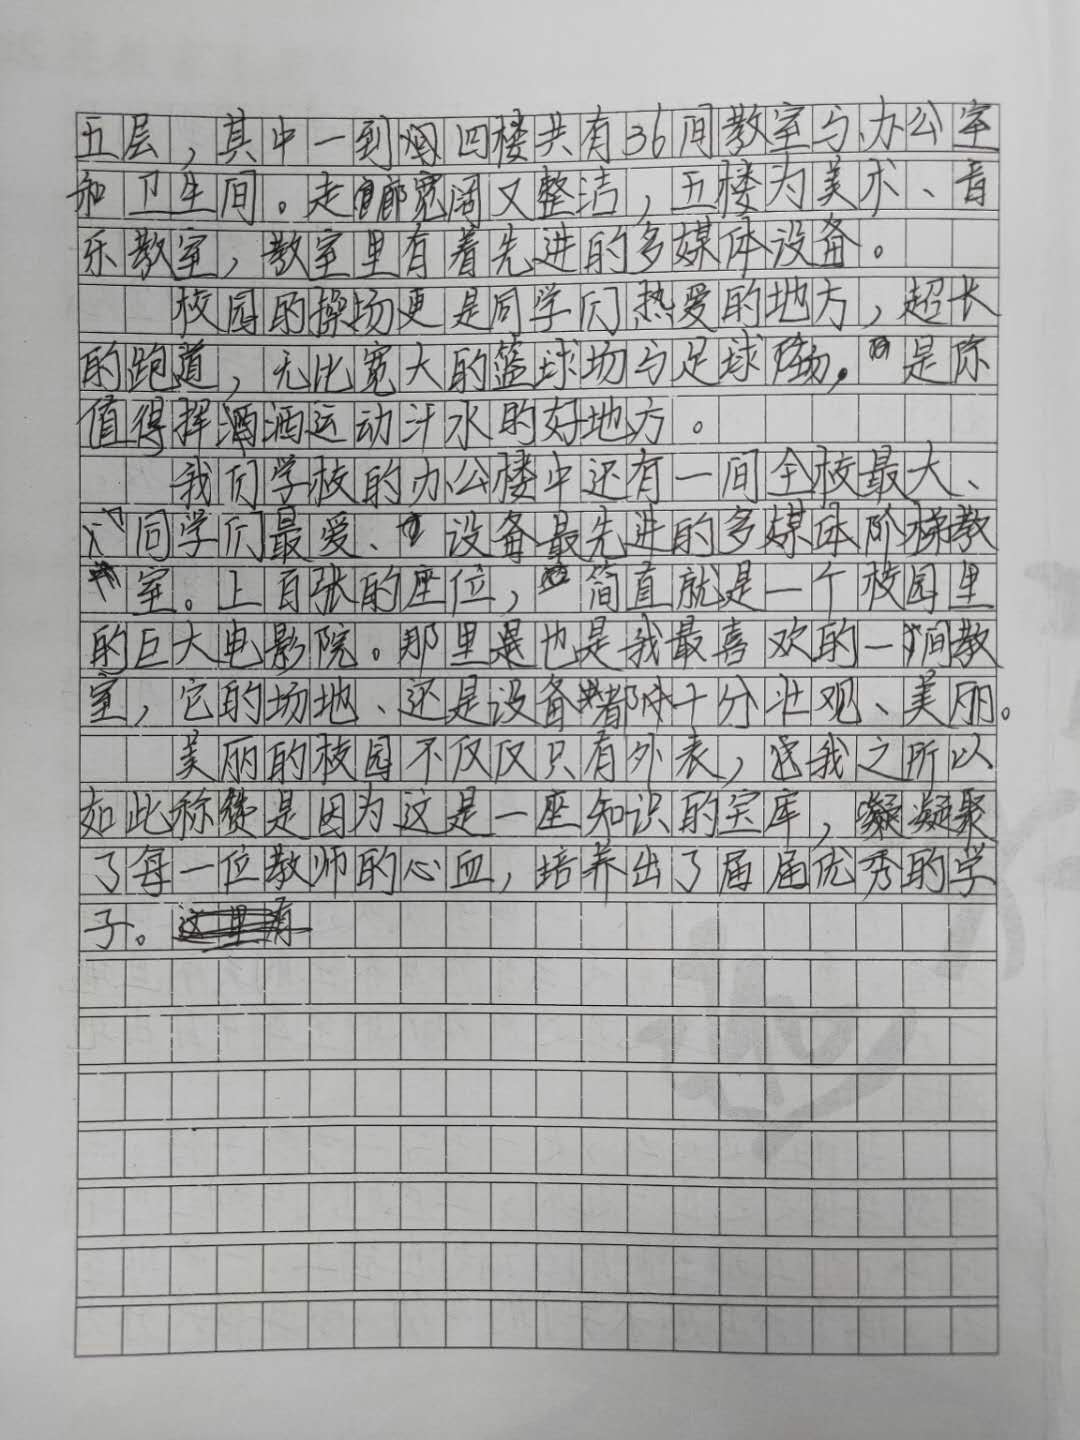 五层，其中一到四楼共有36间教室与办公室
和卫生间。走廊宽阔又整洁，五楼为美术、音
乐教室，教室里有着先进的多媒体设备。
校园的操场更是同学们热爱的地方，超长
的跑道，无比宽大的篮球场与足球场，是你
值得挥洒洒运动汗水的好地方。
我们学校的办公楼中还有一间全校最大、
同学们最爱、设备最先进的多媒体阶梯教
室。上百张的座位，简直就是一个校园里
的巨大电影院。那里也是我最喜欢的一间教
室，它的场地、还是设备都十分壮观、美丽。
美丽的校园不仅仅只有外表，我之所以
如此称赞是因为这是一座知识的宝库，凝聚
了每一位教师的心血，培养出了届届优秀的学
子。